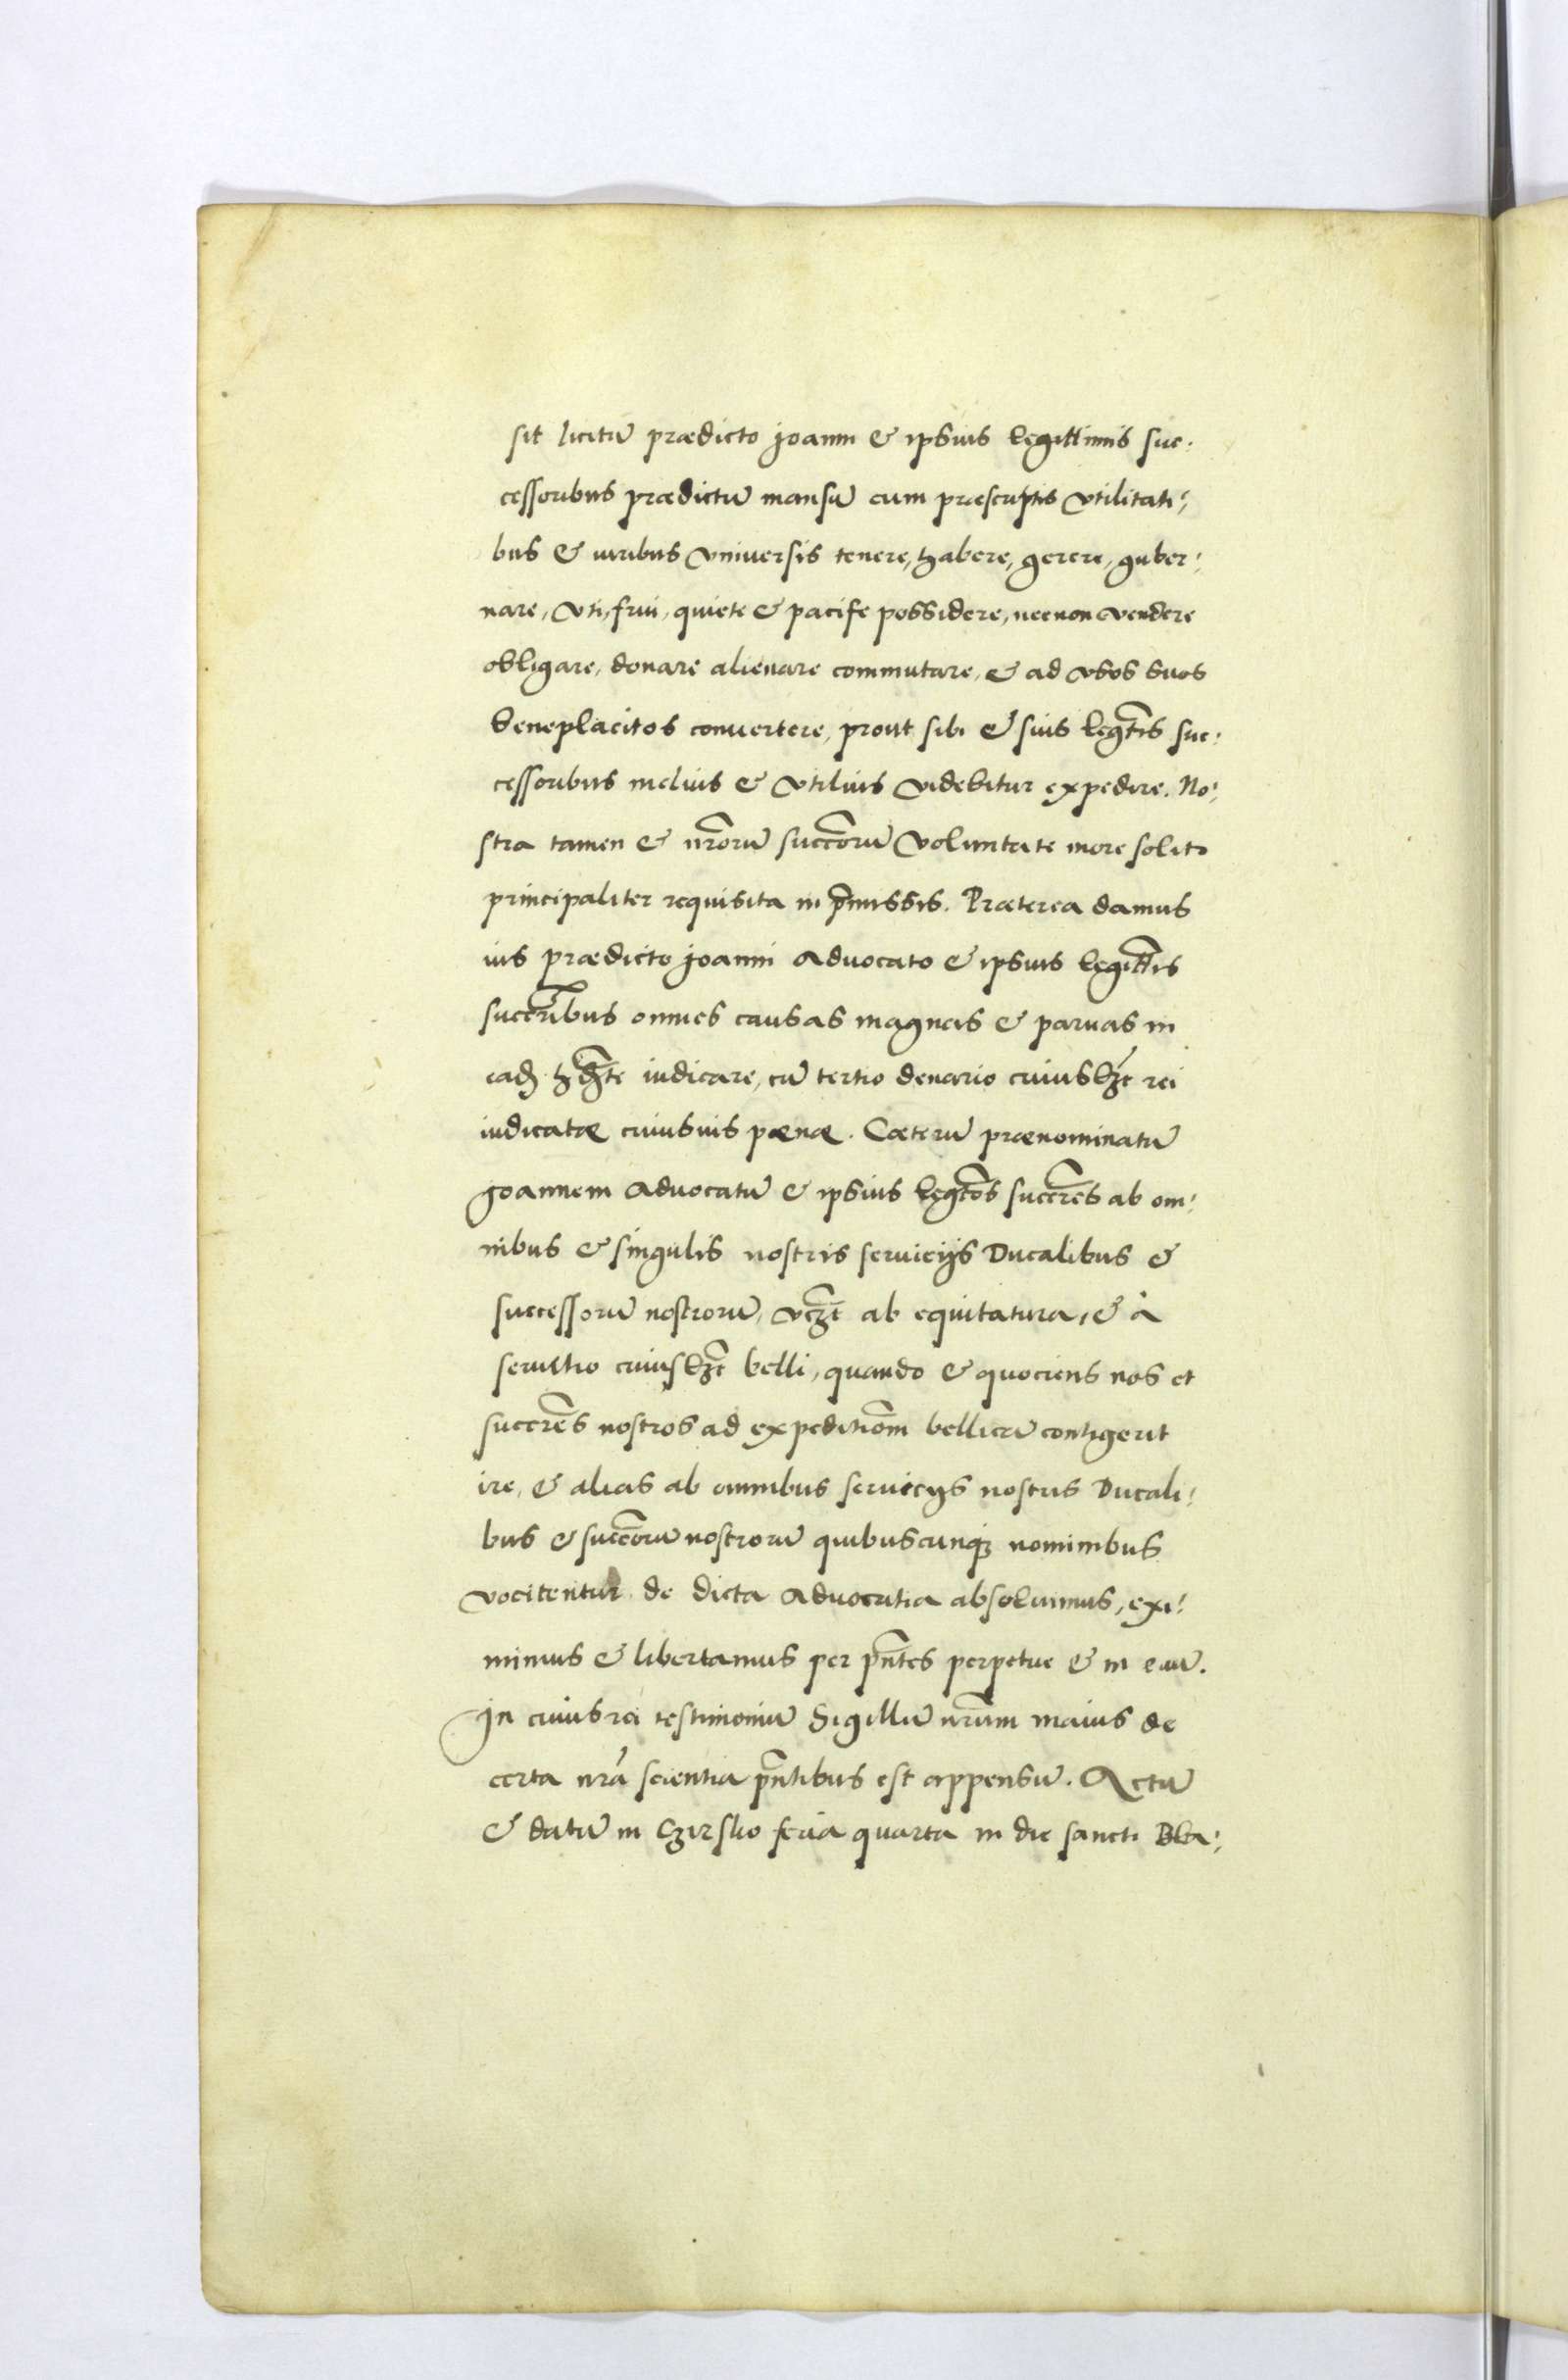 sit licitū prædicto Joanni & ipsius legittimis suc:
cessoribus prædictū mansū cum præscriptis vtilitati:
bus & iuribus vniuersis tenere, habere, gerere, guber:
nare, vti, frui, quiete & pacife possidere, necnon vendere
obligare, donare alienare commutare, & ad vsus suos
beneplacitos conuertere, prout sibi & suis legt̄is suc:
cessoribus melius & vtilius videbitur expedire. No:
stra tamen & nr̄orū succ̄orū voluntate more solito
principaliter requisita in p̄missis. Præterea damus
ius prædicto Joanni Aduocato & ipsius legitt̄is
succr̄ibus omnes causas magnas & paruas in
iudicare, cū tertio denario cuiusłꝫt rei
iudicatæ cuiusuis pœnæ. Cæterū prænominatū
Joannem Aduocatū & ipsius legt̄os succr̄es ab om:
nibus & singulis nostris seruicijs Ducalibus &
successorū nostrorū, vcꝫt̄ ab equitatura, & à
seruitio cuiusłꝫt belli, quando & quociens nos et
succr̄es nostros ad expeditiōm bellicā contigerit
ire, & alias ab omnibus seruicijs nostris Ducali:
bus & succ̄orū nostrorū quibuscunqꝫ nominibus
vocitentur de dicta Aduocatia absoluimus, exi:
mimus & libertamus per pn̄tes perpetue & in euū.
In cuius rei testimoniū Sigillū nr̄um maius de
certa nr̄a scientia pn̄tibus est appensū. Actū
& datū in Czirsko feria quarta in die sancti Bla: